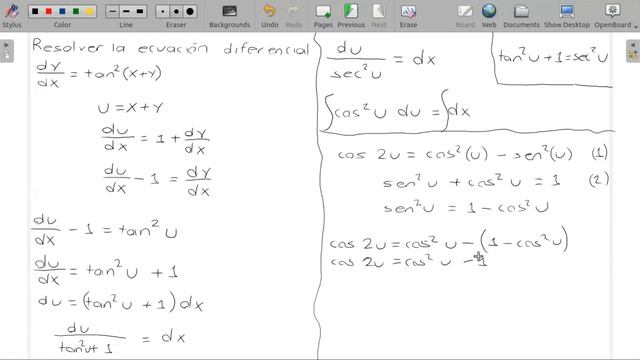 Stylus
Color
Line
Eraser
Backgrounds
Undo
Redo
Pages
Previous
Next
Board
Web
Documents
Show Desktop
OpenBoard
Resolver la ecuación diferencial
dy/dx = tan²(x+y)
u = x+y
du/dx = 1 + dy/dx
du/dx - 1 = dy/dx
du/dx - 1 = tan² u
du/dx = tan² u + 1
du = (tan² u + 1) dx
du/(tan² u + 1) = dx
du/sec² u = dx
tan² u + 1 = sec² u
∫cos² u du = ∫dx
cos 2u = cos²(u) - sen²(u) (1)
sen² u + cos² u = 1 (2)
sen² u = 1 - cos² u
cos 2u = cos² u - (1 - cos² u)
cos 2u = cos² u - 1